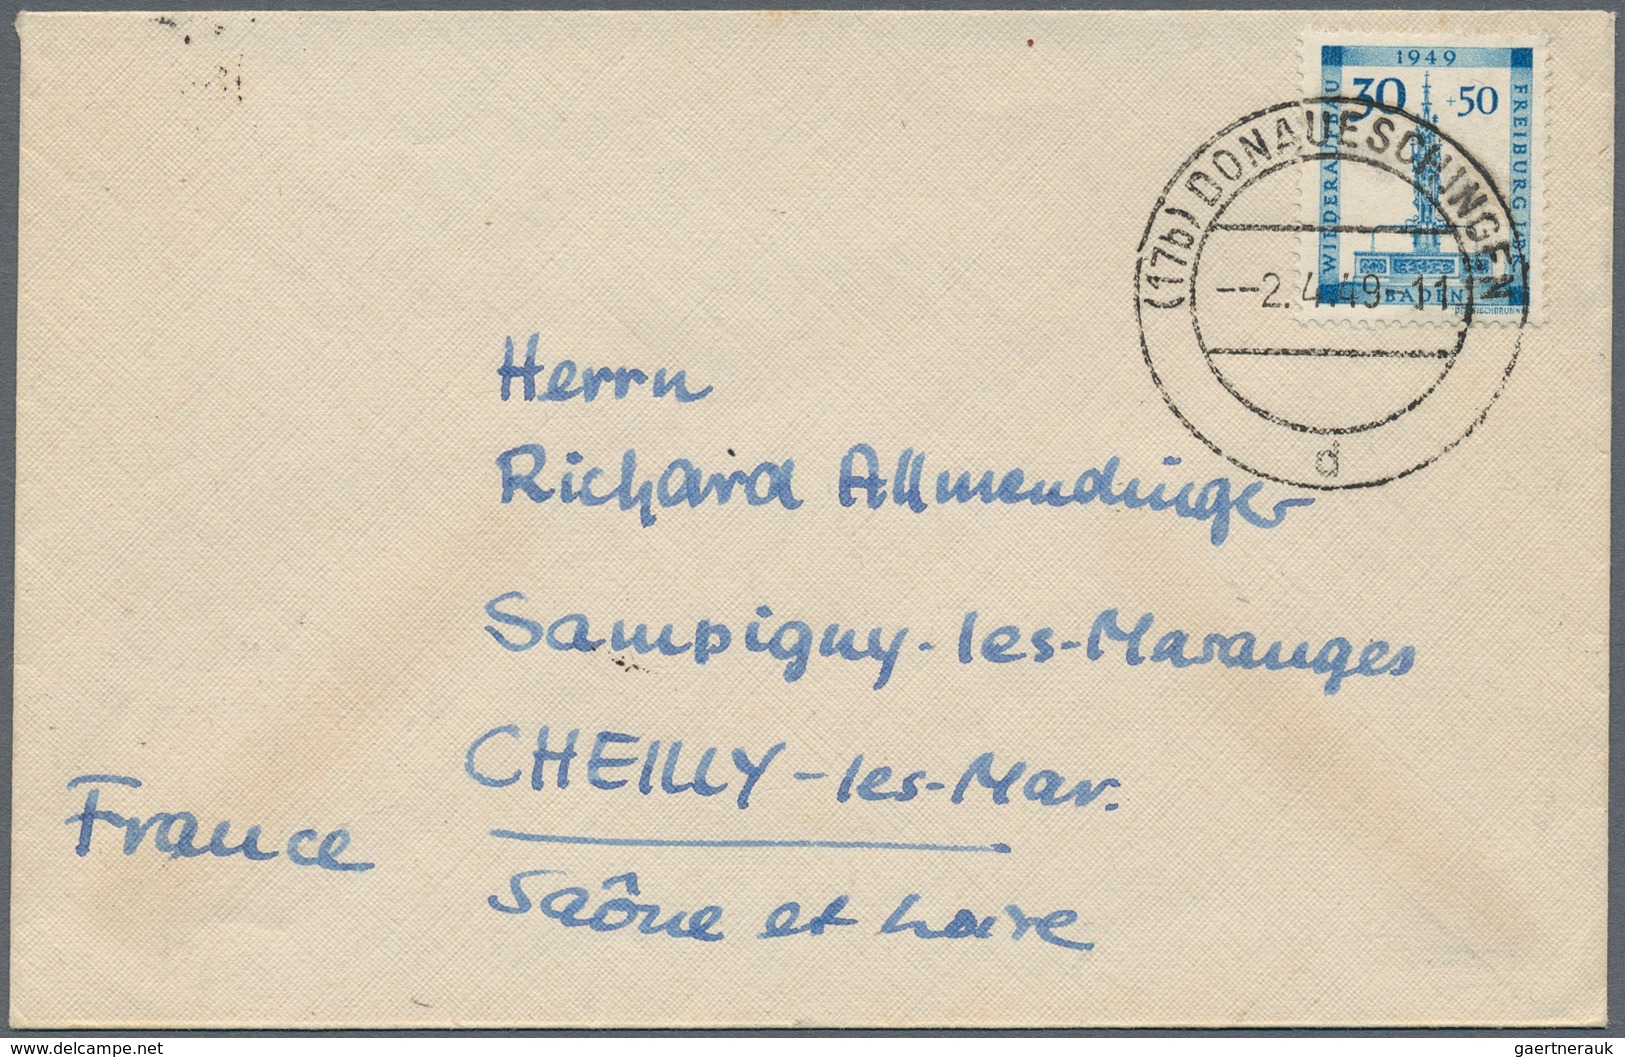 1949
30 +50
WIEDERAUFBAU
FREIBURG I. BR.
BADEN
(17b) DONAUESCHINGEN
--2.4.49-11
d
Herrn
Richard Allmendinger
Sampigny-les-Maranges
CHEILLY-les-Mar.
France
Saône et Loire
www.delcampe.com
gaertnerauk